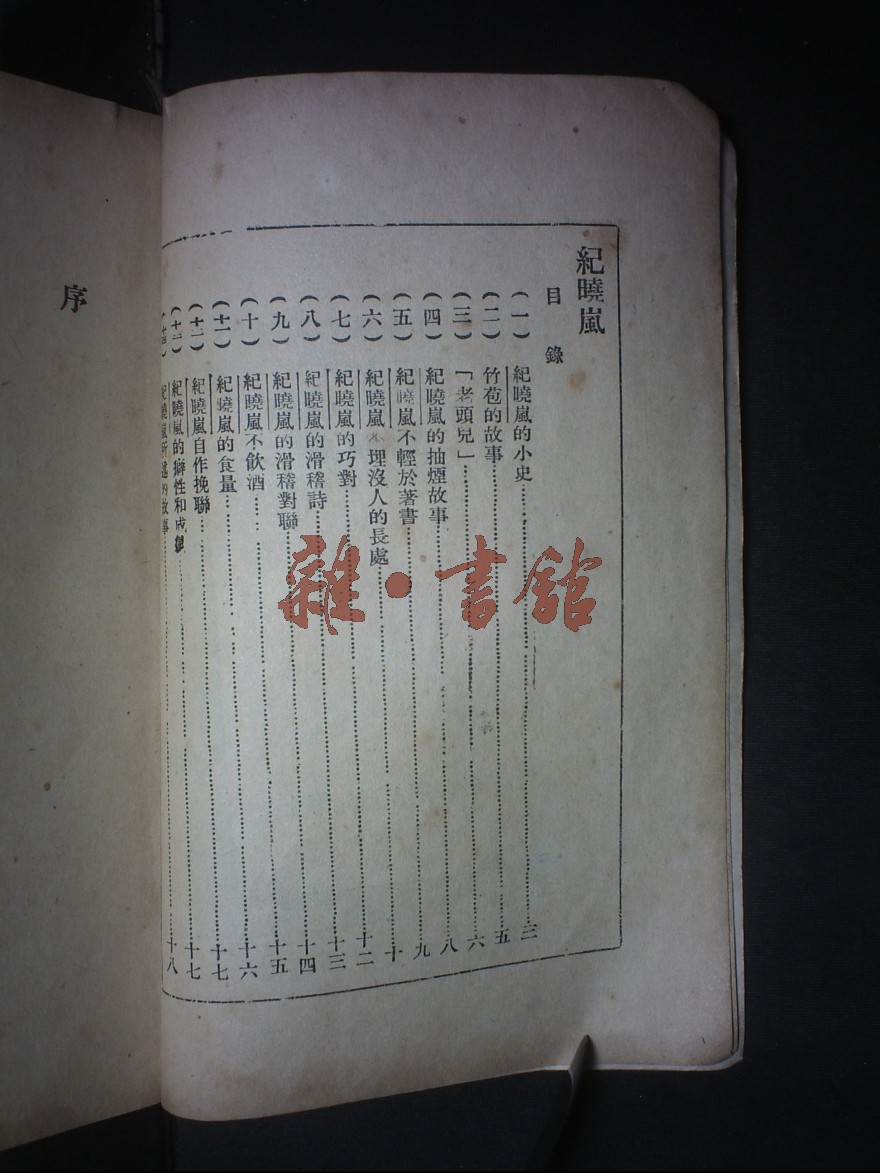 紀曉嵐
目錄
(一)紀曉嵐的小史……三
(二)竹苞的故事……五
(三)「老頭兒」……六
(四)紀曉嵐的抽煙故事……八
(五)紀曉嵐不輕於著書……九
(六)紀曉嵐不埋沒人的長處……十
(七)紀曉嵐的巧對……十二
(八)紀曉嵐的滑稽詩……十三
(九)紀曉嵐的滑稽對聯……十四
(十)紀曉嵐不飲酒……十五
(十一)紀曉嵐的食量……十六
(十二)紀曉嵐自作挽聯……十七
(十三)紀曉嵐的癖性和……十七
(十四)紀曉嵐所述的故事……十八
序
雜·書館